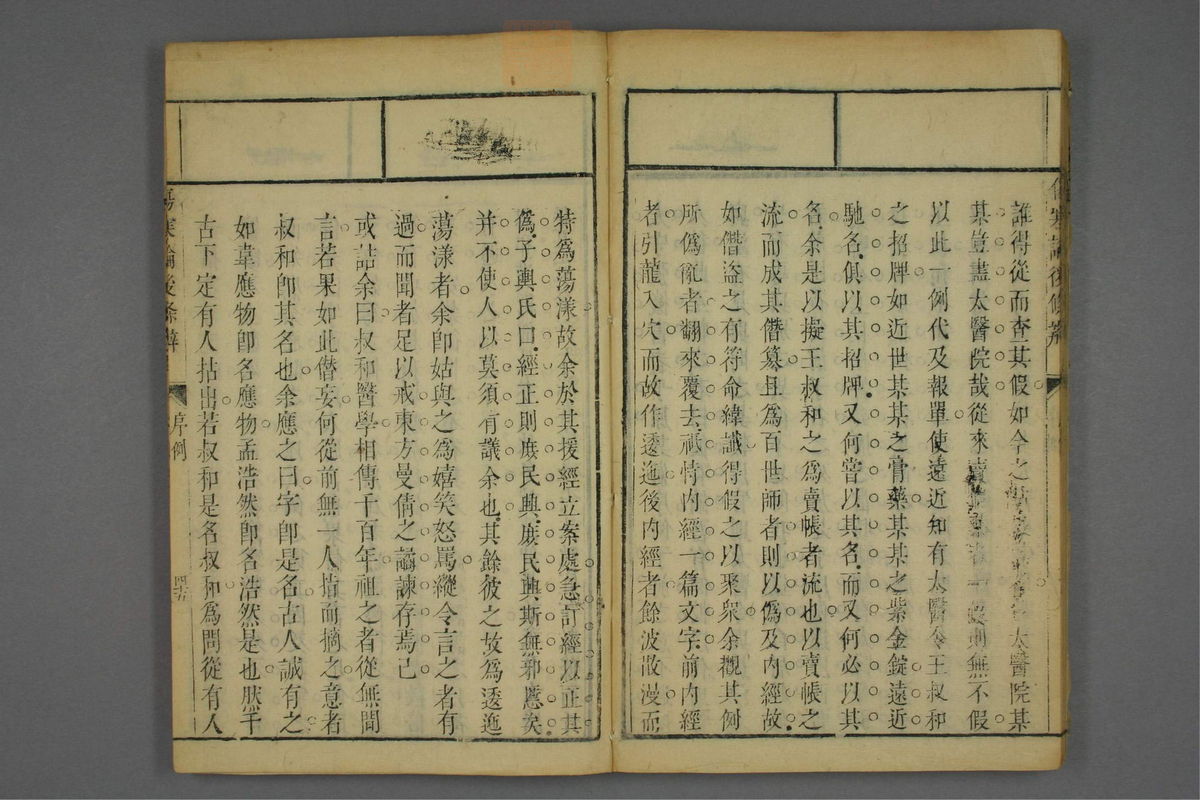 誰得從而查其假如今之太醫院某
某豈盡太醫院哉從來一則無不假
以此一例代及報單使遠近知有太醫令王叔和
之招牌如近世某某之膏藥某某之紫金錠遠近
馳名俱以其招牌又何嘗以其名而又何必以其
名余是以擬王叔和之為賣帳者流也以賣帳之
流而成其僭纂且為百世師者則以偽及內經故
如僭盜之有符命緯讖得假之以聚眾余觀其例
所偽寵者翻來覆去祇恃內經一篇文字前內經
者引龍入穴而故作逶迤後內經者餘波散漫而
特爲蕩漾故余於其援經立案處急訂經以正其
偽子輿氏曰經正則庶民興庶民興斯無邪慝矣
并不使人以莫須有議余也其餘彼之故爲逶迤
蕩漾者余卽姑與之爲嬉笑怒罵縱令言之者有
過而聞者足以戒東方曼倩之譎諫存焉已
或詰余曰叔和醫學相傳千百年祖之者從無間
言若果如此僭妄何從前無一人指而摘之意者
叔和卽其名也余應之曰字卽是名古人誠有之
如韋應物卽名應物孟浩然卽名浩然是也然千
古下定有人拈出若叔和是名叔和爲問從有人
傷寒論後條辨
序例
四五